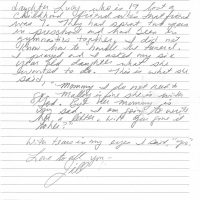 daughter Lucy, who is 19 lost a
childhood friend when that friend
was 4. They had spent two years
in preschool and had been in
gymnastics together. I did not
know how to handle the funeral.
I prayed and I asked my six
year old daughter what she
wanted to do. This is what she
said.
"Mommy I do not need to
go. Molly is fine she is with
God. But her mommy is
very sad. I am going to write
her a letter. Will you give it
to her?"
With tears in my eyes I said, "yes"
Love to all you -
Jill